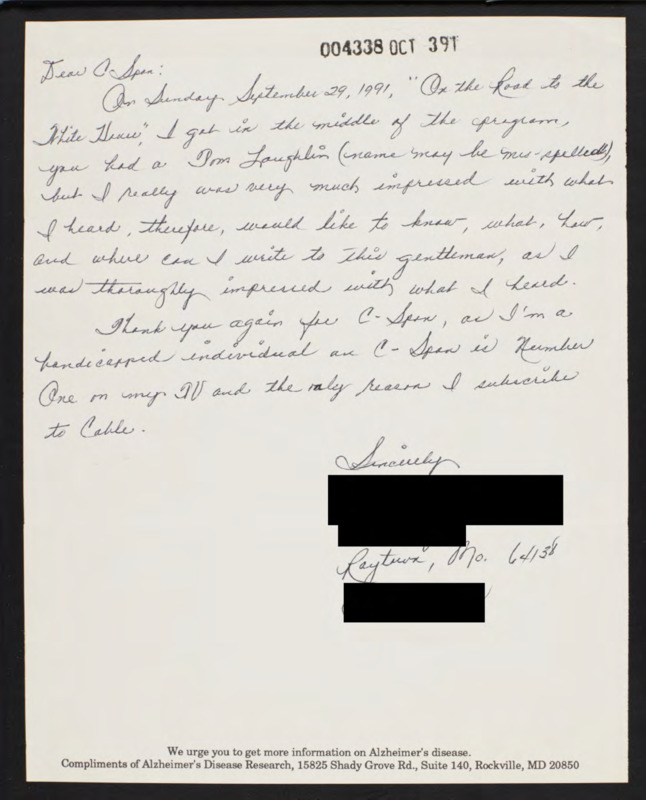 004338 OCT 39T
Dear C-Span:
On Sunday September 29, 1991, "On the Road to the
White House", I got in the middle of the program,
you had a Tom Laughlin (name may be mis-spelled),
but I really was very much impressed with what
I heard, therefore, would like to know, what, how,
and where can I write to this gentleman, as I
was thoroughly impressed with what I heard.
Thank you again for C-Span, as I'm a
handicapped individual an C-Span is Number
One on my TV and the only reason I subscribe
to Cable.
Sincerely
Raytown, Mo. 64138
We urge you to get more information on Alzheimer's disease.
Compliments of Alzheimer's Disease Research, 15825 Shady Grove Rd., Suite 140, Rockville, MD 20850